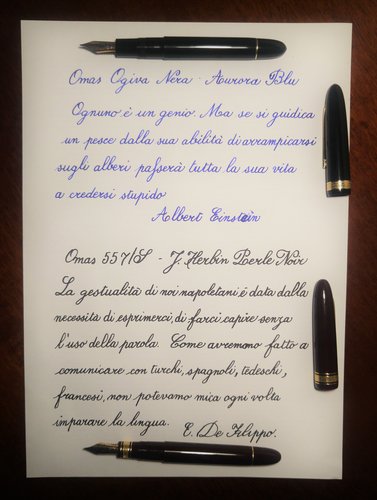 Omas Ogiva Nera - Aurora Blu
Ognuno è un genio. Ma se si giudica
un pesce dalla sua abilità di arrampicarsi
sugli alberi passerà tutta la sua vita
a credersi stupido
Albert Einstein
Omas 557/S - J. Herbin Perle Noir
La gestualità di noi napoletani è data dalla
necessità di esprimerci, di farci capire senza
l'uso della parola. Come avremmo fatto a
comunicare con turchi, spagnoli, tedeschi,
francesi, non potevamo mica ogni volta
imparare la lingua.
E. De Filippo.